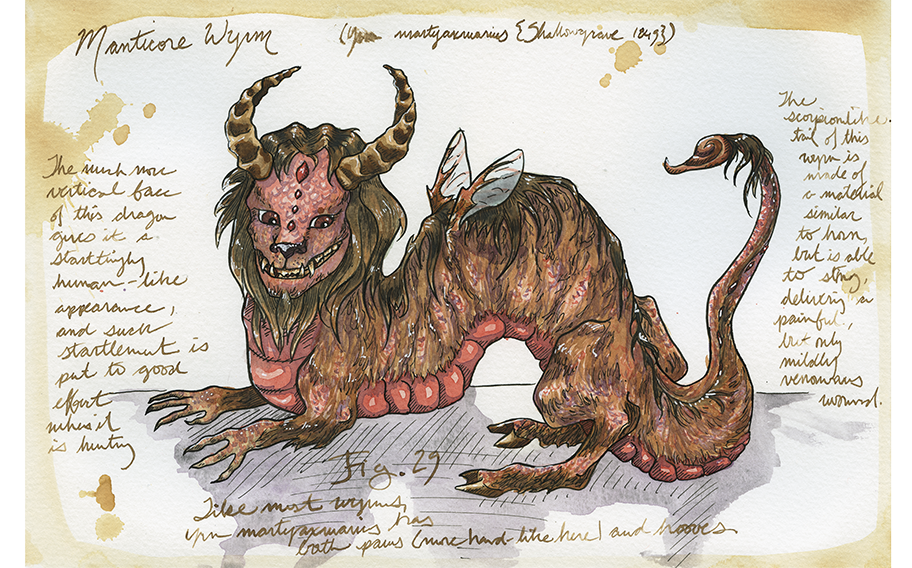 Manticore Wyrm
(Yrm martyaxwarius {Shallowgrave 1249})
The much more
vertical face
of this dragon
gives it a
startlingly
human-like
appearance,
and such
startlement is
put to good
effort
when it
is hunting
The
scorpionlike
tail of this
wyrm is
made of
a material
similar
to horn,
but is able
to sting,
delivering a
painful,
but only
mildly
venomous
wound.
Fig. 29
Like most wyrms,
yrm martyaxwarius has
both paws (more hand-like here) and hooves